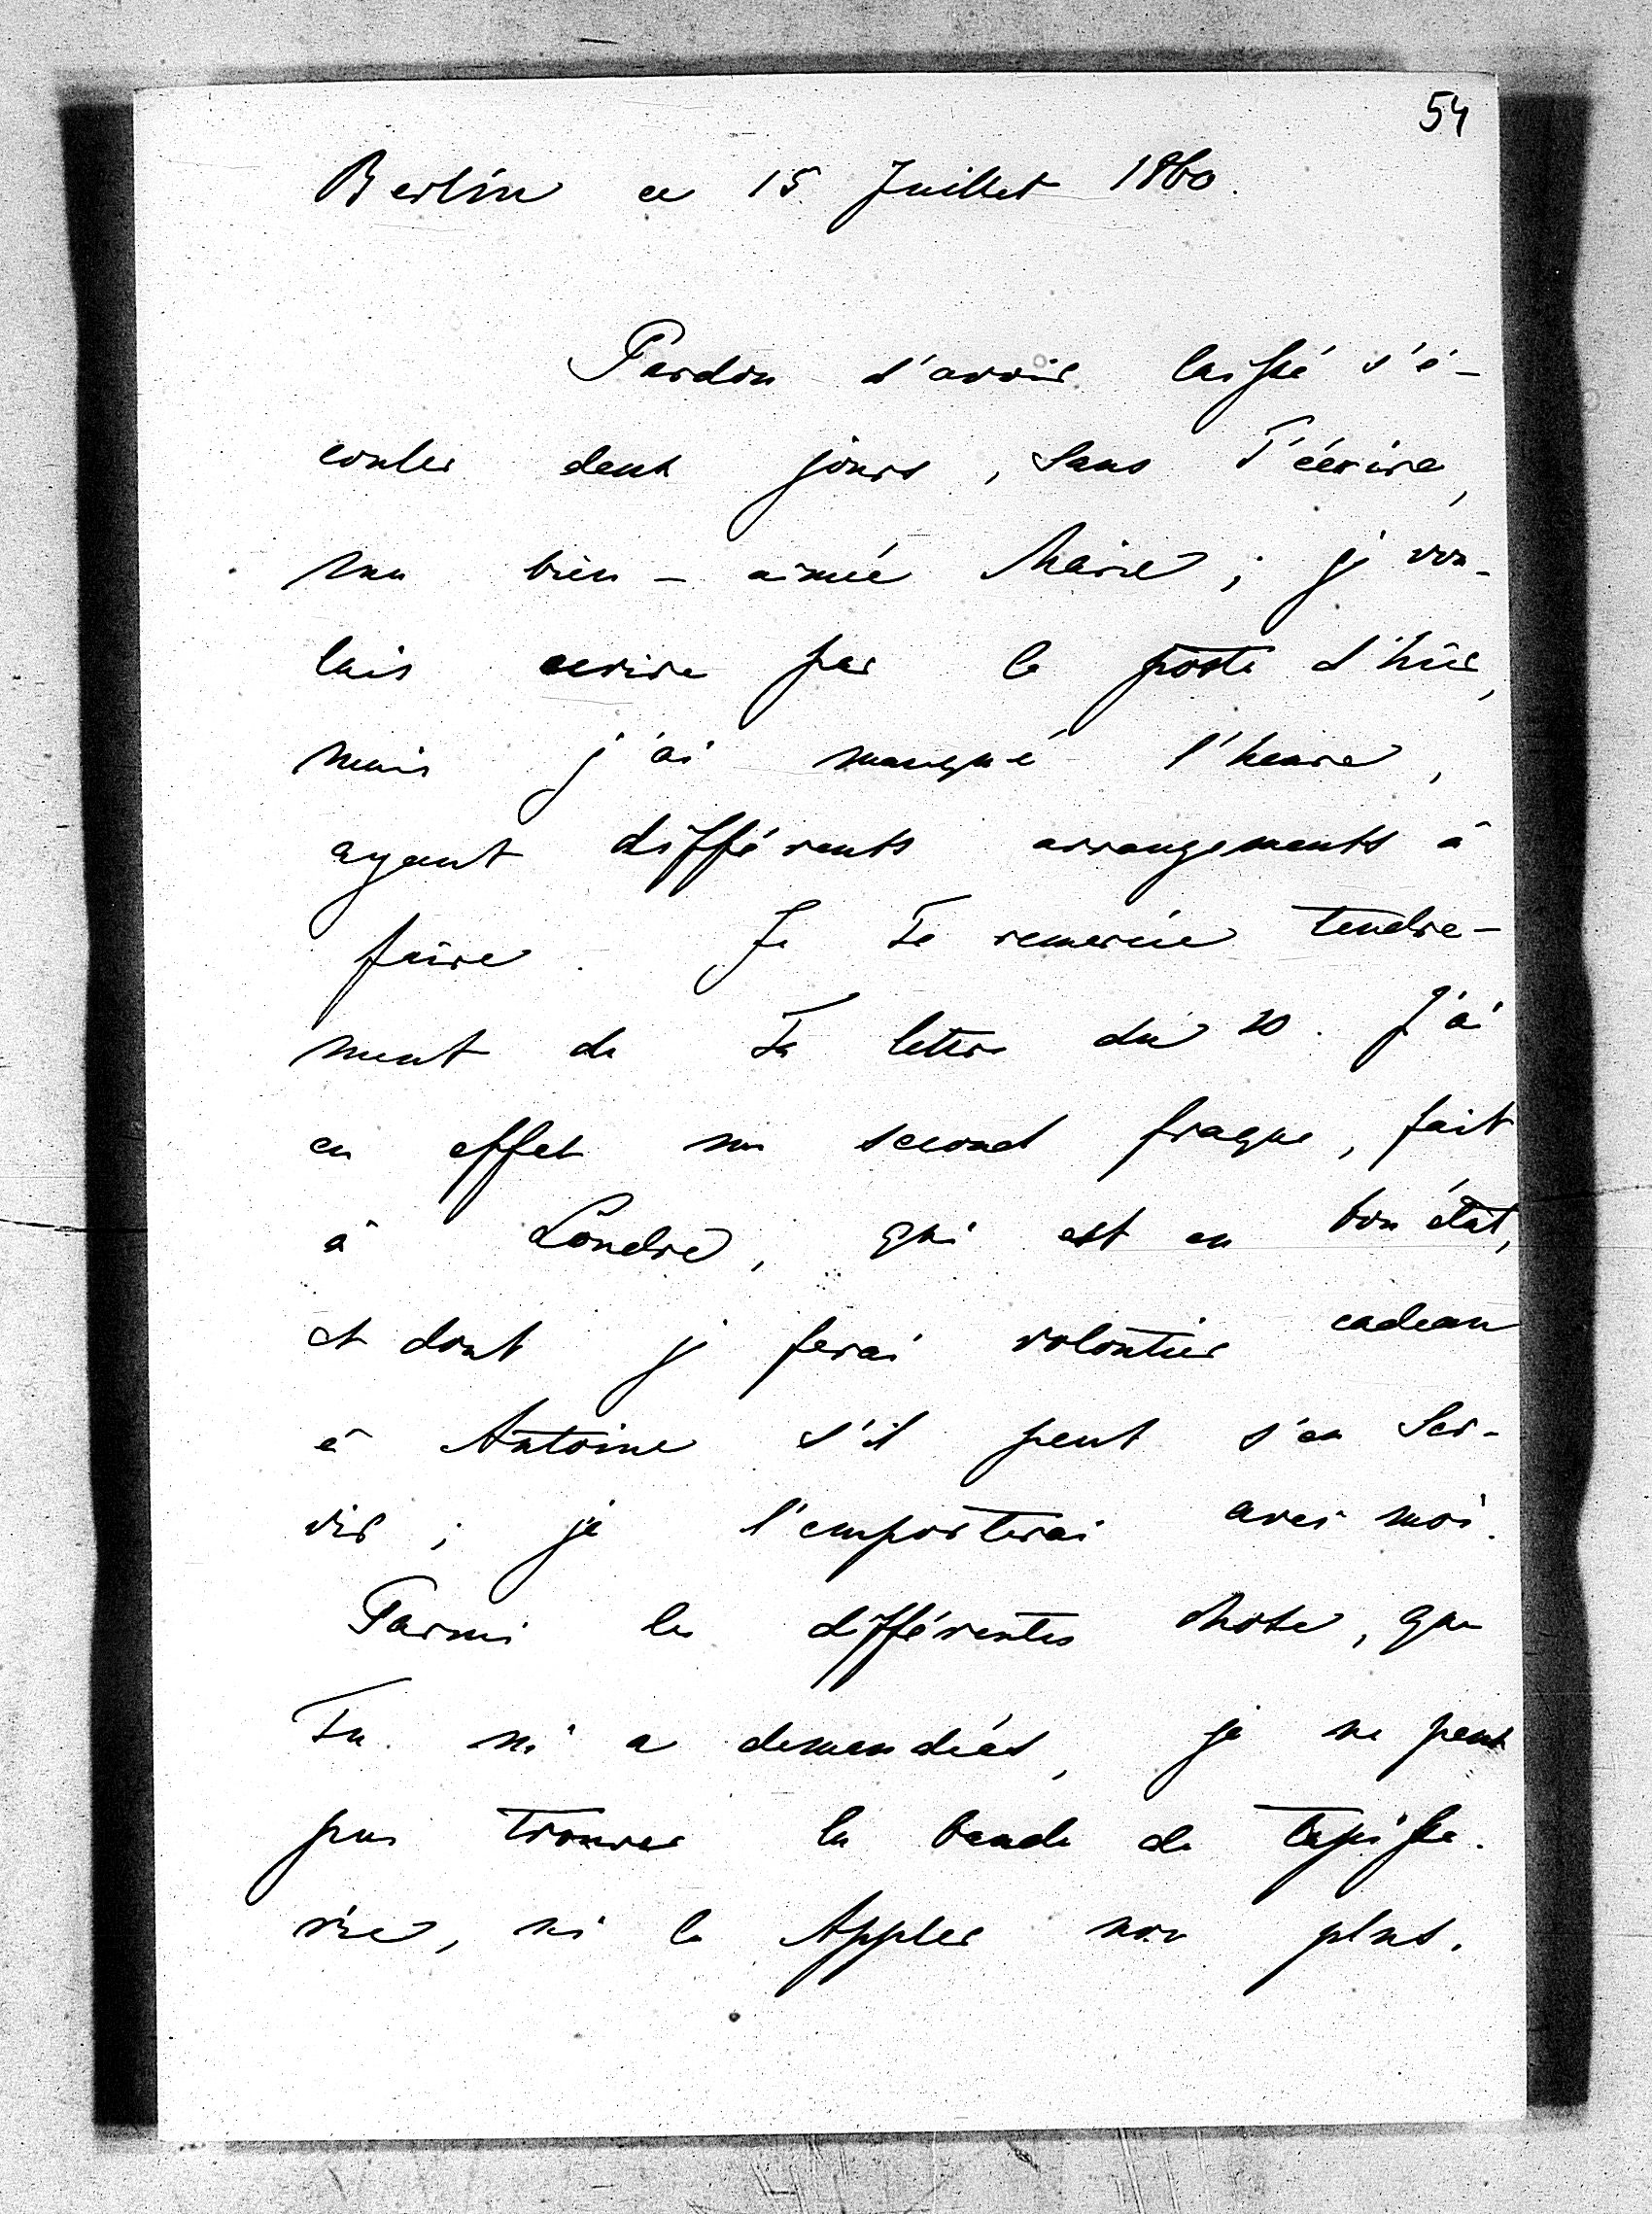 54
Berlin ce 15 Juillet 1860.
Pardon d'avoir laissé s'é-
couler deux jours, sans T'écrire,
ma bien-aimée Marie; je vou-
lais ecrire par la poste d'hier,
mais j'ai manqué l'heure,
ayant différents arrangements à
faire. Je Te remercie tendre-
ment de Ta lettre du 10. J'ai
en effet un second fraque, fait
à Londre, qui est en bon état,
et dont je ferai volontier cadeau
à Antoine s'il peut s'en ser-
vir; je l'emporterai avec moi.
Parmi les différentes chose, que
Tu m'a demandées, je ne peux
pas trouver la bande de tapisse-
rie, ni la Appler non plus.